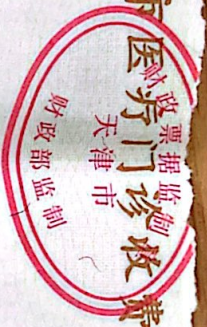 市医疗门诊收费
财政票据监制
天津市
财政部监制